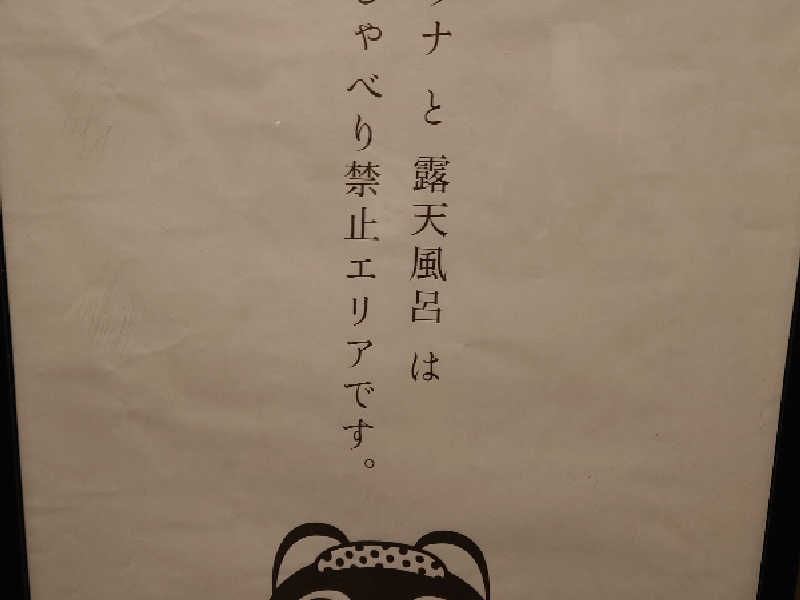 ナと露天風呂は
ゃべり禁止エリアです。